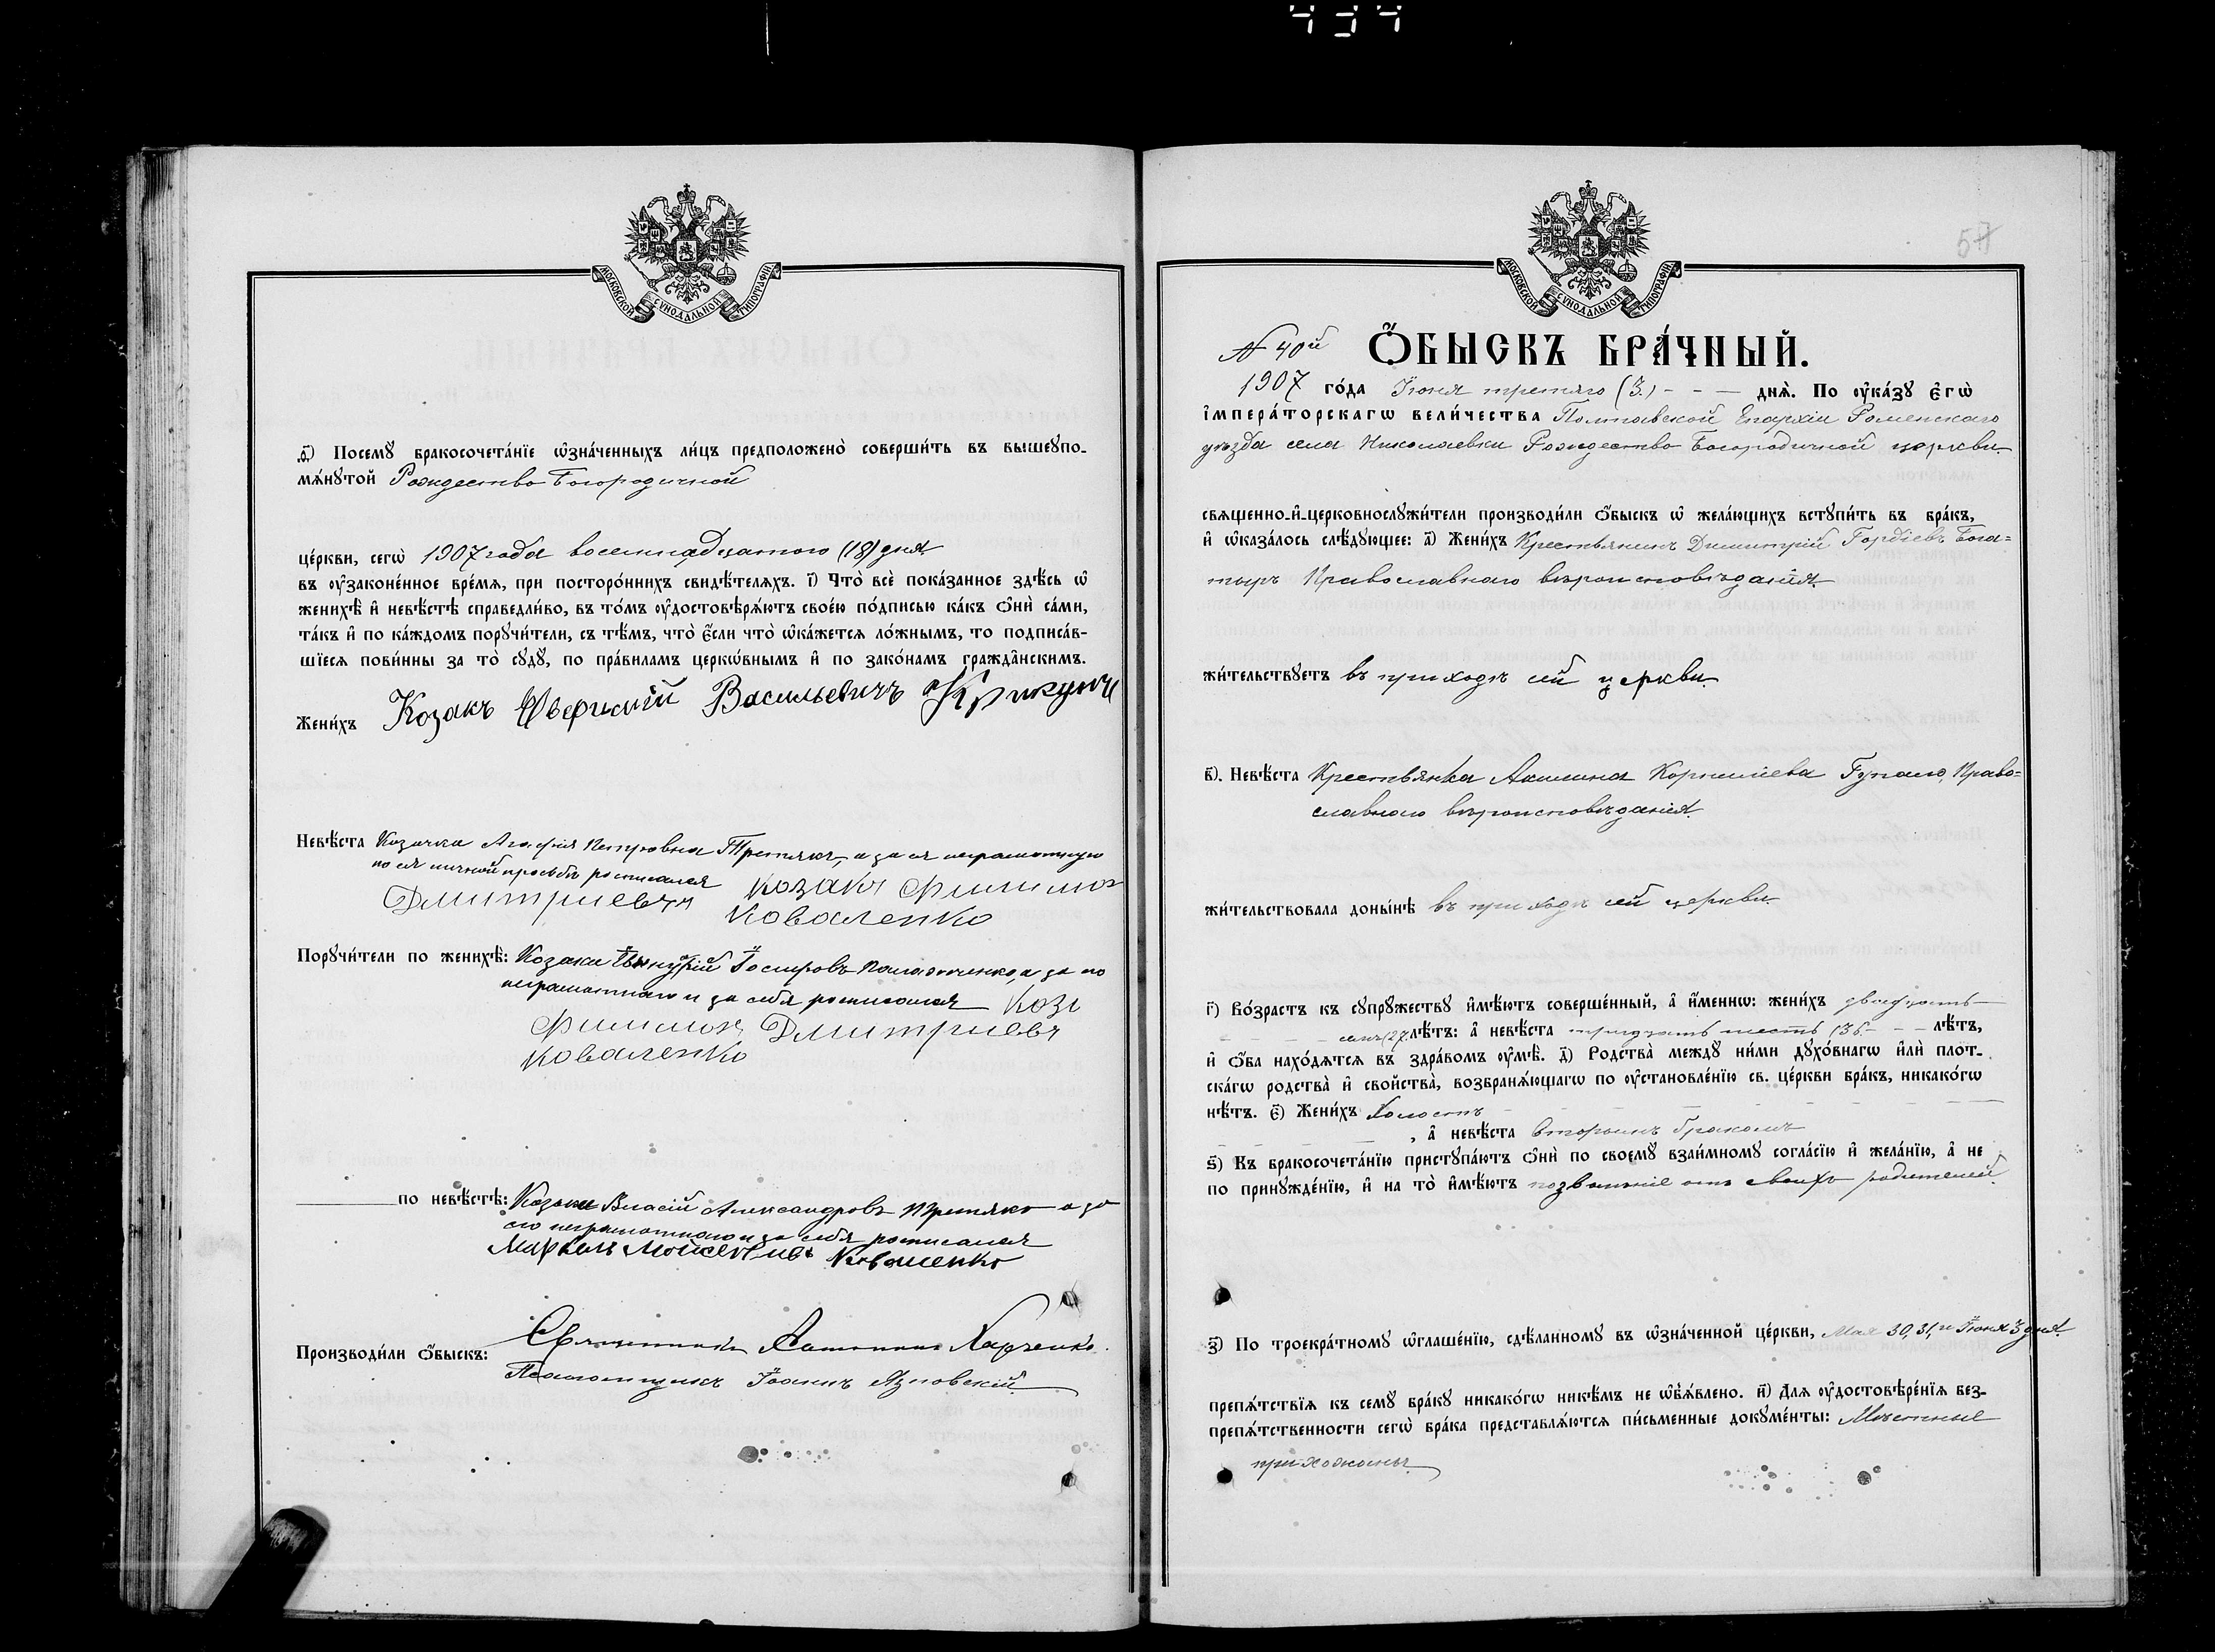 МОСКОВСКОЙ СѴНОДАЛЬНОЙ ТИПОГРАФІИ
ѳ҃) Посемꙋ бракосочета́нїе ѡ҆зна́ченныхъ ли́цъ предположено̀ соверши́ть въ вышеꙋпо-
мѧ́нꙋтой Рождество-Богородичной
це́ркви, сегѡ̀ 1907 года восемнадцатого (18) дня
въ ᲂу҆законе́нное вре́мѧ, при посторо́ннихъ свидѣ́телѧхъ. і҃) Что̀ всѐ пока́занное здѣ́сь ѡ҆
женихѣ̀ и҆ невѣ́стѣ справедли́во, въ то́мъ ᲂу҆достовѣрѧ́ютъ свое́ю по́дписью ка́къ ѻ҆нѝ са́ми,
та́къ и҆ по ка́ждомъ порꙋчи́тели, съ тѣ́мъ, что̀ є҆́сли что̀ ѡ҆ка́жетсѧ ло́жнымъ, то подписа́в-
шїесѧ пови́нны за то̀ сꙋдꙋ̀, по пра́виламъ церкѡ́внымъ и҆ по зако́намъ гражда̂нскимъ.
Жени́хъ Козакъ Васильевичъ Крикунъ
Невѣ́ста Козачка Агафія Петровна Третякъ, а за ея неграмотную
по ея личной просьбѣ росписался козакъ Филимон
Дмитриевъ Коваленко
Порꙋчи́тели по женихѣ̀: Козаки а за но
неграмотнаго и за себя росписался Коза
Филимон Дмитриевъ
Коваленко
по невѣ́стѣ: Козаки Власій Александровъ Третякъ а за
его неграмотного и за себя росписался
Маркелъ Мойсеевъ Коваленко
Производи́ли ѻ҆́быскъ: Священникъ Харченко.
Псаломщикъ Іоаннъ Язловскій
57
МОСКОВСКОЙ СѴНОДАЛЬНОЙ ТИПОГРАФІИ
N 40й Ѻ҆́БЫСКЪ БРА́ЧНЫЙ.
1907 го́да Іюня третяго (3.) - - — днѧ̀. По ᲂу҆ка́зꙋ є҆гѡ̀
і҆мпера́торскагѡ вели́чества Полтавской Епархіи Роменскаго
уѣзда села Николаевки Рождество-Богородичной церкви
свѧщенно-и҆-церковнослꙋжи́тели производи́ли ѻ҆́быскъ ѡ҆ жела́ющихъ встꙋпи́ть въ бра́къ,
и҆ ѡ҆каза́лось слѣ́дꙋющее: а҃) Жени́хъ Крестьянинъ Димитрій Гордіевъ Бога=
тыръ Православнаго вѣроисповѣданія
жи́тельствꙋетъ въ приходѣ сей церкви
в҃). Невѣ́ста Крестьянка Акилина Корнилiева Гупало, Право=
славного вѣроисповѣданія.
жи́тельствовала доны́нѣ въ приходѣ сей церкви
г҃) Во́зрастъ къ сꙋпрꙋ́жествꙋ и҆мѣ́ютъ соверше́нный, а҆ и҆́меннѡ: жени́хъ двадцать
- - - - семь (27 лѣ́тъ: а҆ невѣ́ста тридцать шесть (36 - - - лѣ́тъ,
и҆ ѻ҆́ба нахо́дѧтсѧ въ здра́вомъ ᲂу҆мѣ̀. д҃) Родства̀ междꙋ̀ ни́ми дꙋхо́внагѡ и҆лѝ плот-
ска́гѡ родства̀ и҆ свойства̀, возбранѧ́ющагѡ по ᲂу҆становле́нїю св. це́ркви бра́къ, никако́гѡ
нѣ́тъ. є҃) Жени́хъ Холостъ
, а҆ невѣ́ста вторымъ бракомъ
ѕ҃) Къ бракосочета́нїю пристꙋпа́ютъ ѻ҆нѝ по своемꙋ̀ взаи́мномꙋ согла́сїю и҆ жела́нїю, а҆ не
по принꙋжде́нїю, и҆ на то̀ и҆мѣ́ютъ позволеніе отъ своихъ родителей.
з҃) По троекра́тномꙋ ѡ҆глаше́нїю, сдѣ́ланномꙋ въ ѡ҆зна́ченной це́ркви, Мая 30, 31, и Іюня 3 дня.
препѧ́тствїѧ къ семꙋ̀ бра́кꙋ никако́гѡ никѣ́мъ не ѡ҆б̾ѧ́влено. и҃) Длѧ ᲂу҆достовѣре́нїѧ без-
препѧ́тственности сегѡ̀ бра́ка представлѧ́ютсѧ пи́сьменные докꙋме́нты: Мѣстные
прихожаны